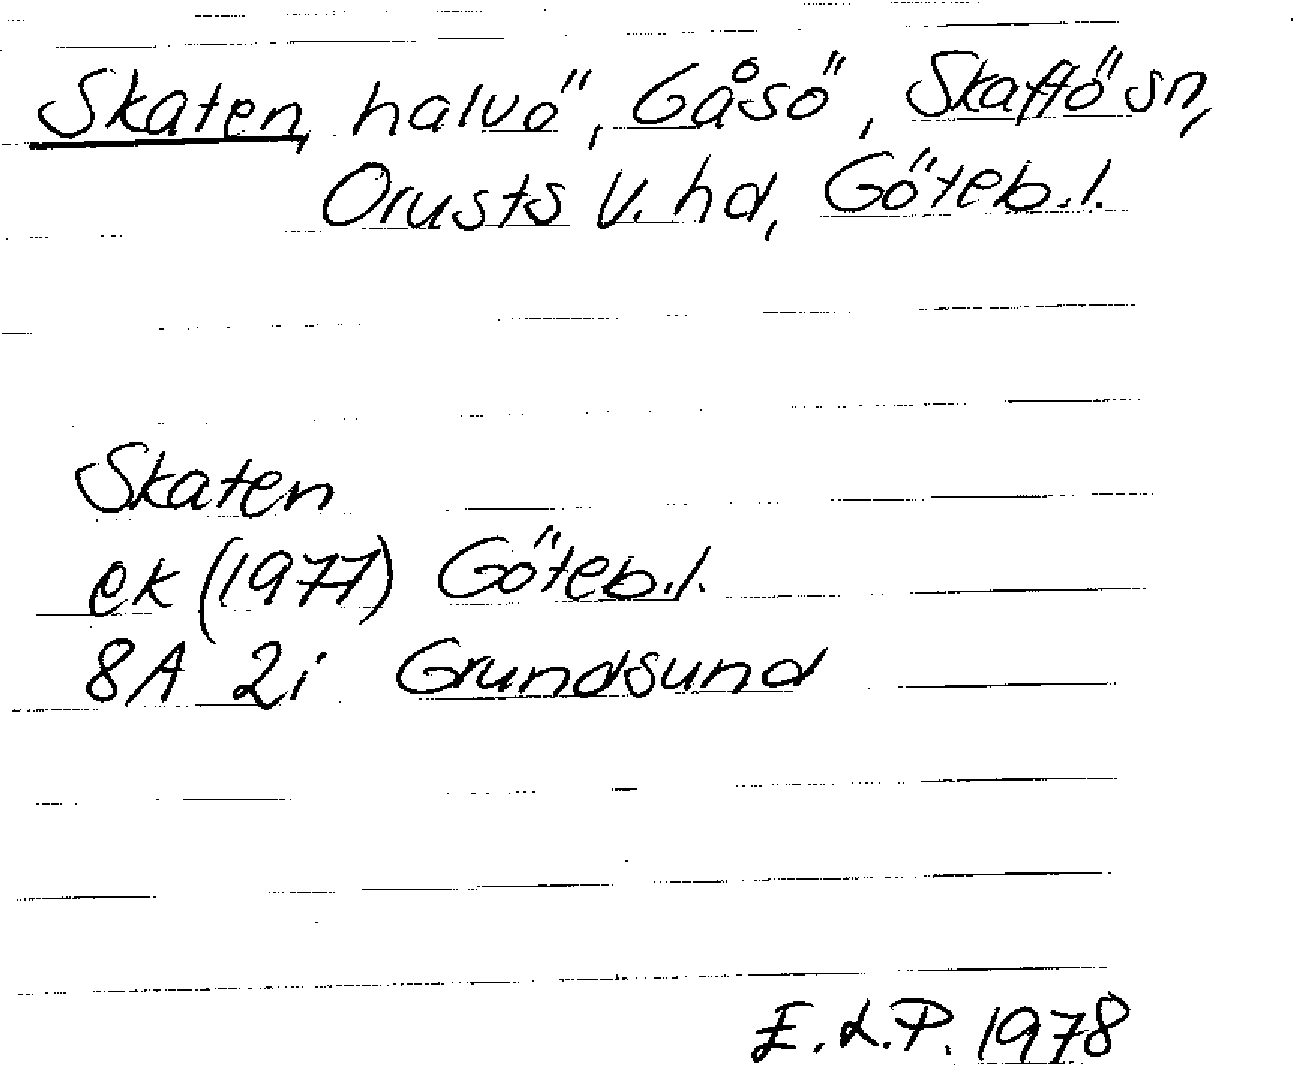 Skaten, halvö, Gåsö, Skaftö sn,
Orusts V. hd, Göteb. l.
Skaten
ek (1977) Göteb. l.
8A 2i Grundsund
E.L.P. 1978